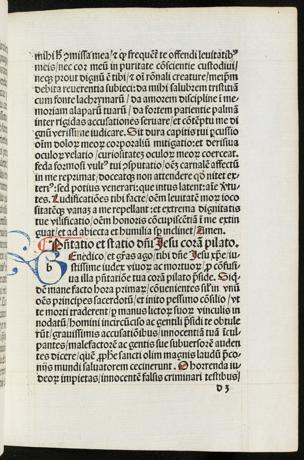 mihi hꝰ ꝯmissa mea: ⁊ ꝙ frequēter te offendi leuitatibꝰ
meis: nec cor meū in puritate cōscientie custodiui:
necꝫ prout dignū ē tibi ⁊ oī rōnali creature: meipm̄
debita reuerentia subieci: da mihi salubrem tristitiā
cum fonte lachrymarū: da amorem discipline ī me
moriam alaparū tuarū: da fortem patientie palmā
inter rigidas accusationes seruare: et cōtēptu me di
gnū verissime iudicare. Sit dura capitis tui ꝑcussio
oīm dolorꝫ meorꝫ corporaliū mitigatio: et derisua
oculorꝫ velatio: curiositatē oculorꝫ meorꝫ coerceat.
feda formosi vultꝰ tui ꝯsputatio: oēꝫ carnalē affectū
in me reprimat: doceatqꝫ non attendere qꝺ nitet exte
riꝰ: sed potius venerari: que intus latent: aīe ꝟtu-
tes. Ludificationes tibi facte: oēm leuitatē morꝫ ioco
sitatēqꝫ vanaꝫ a me repellant: et extrema dignitatis
tue vilificatio: oēm honoris cōcupiscētiā ī me extin
guat: et ad abiecta et humilia sꝑ inclinet. Amen.
Pn̄tatio et statio dn̄i Jesu corā pilato.
b
Enedico: et gr̄as ago tibi dn̄e Jesu xp̄e: iu
stissime iudex viuorꝫ ac mortuorꝫ: ꝓ cōfusi-
ua illa pn̄tatiōe tua corā pilato p̄side. Siqꝺē
mane facto hora primar: cōuenientes sil in vnū
oēs principes sacerdotū: et inito pessimo cōsilio: vt
te morti traderent: ꝑ manus lictorꝫ suorꝫ vinculis in
nodatū: homini incircūciso ac gentili p̄sidi te obtule
rūt: grauissimis accusatiōibus: innocentiā tuā īcul
pantes: malefactorē ac gentis sue subuersorē auden
tes dicere: quē ꝓph̄e sancti olim magnis laudū p̄co
nijs mundi saluatorem cecinerunt. O horrenda iu-
deorꝫ impietas: innocentē falsis criminari testibus:
d 3